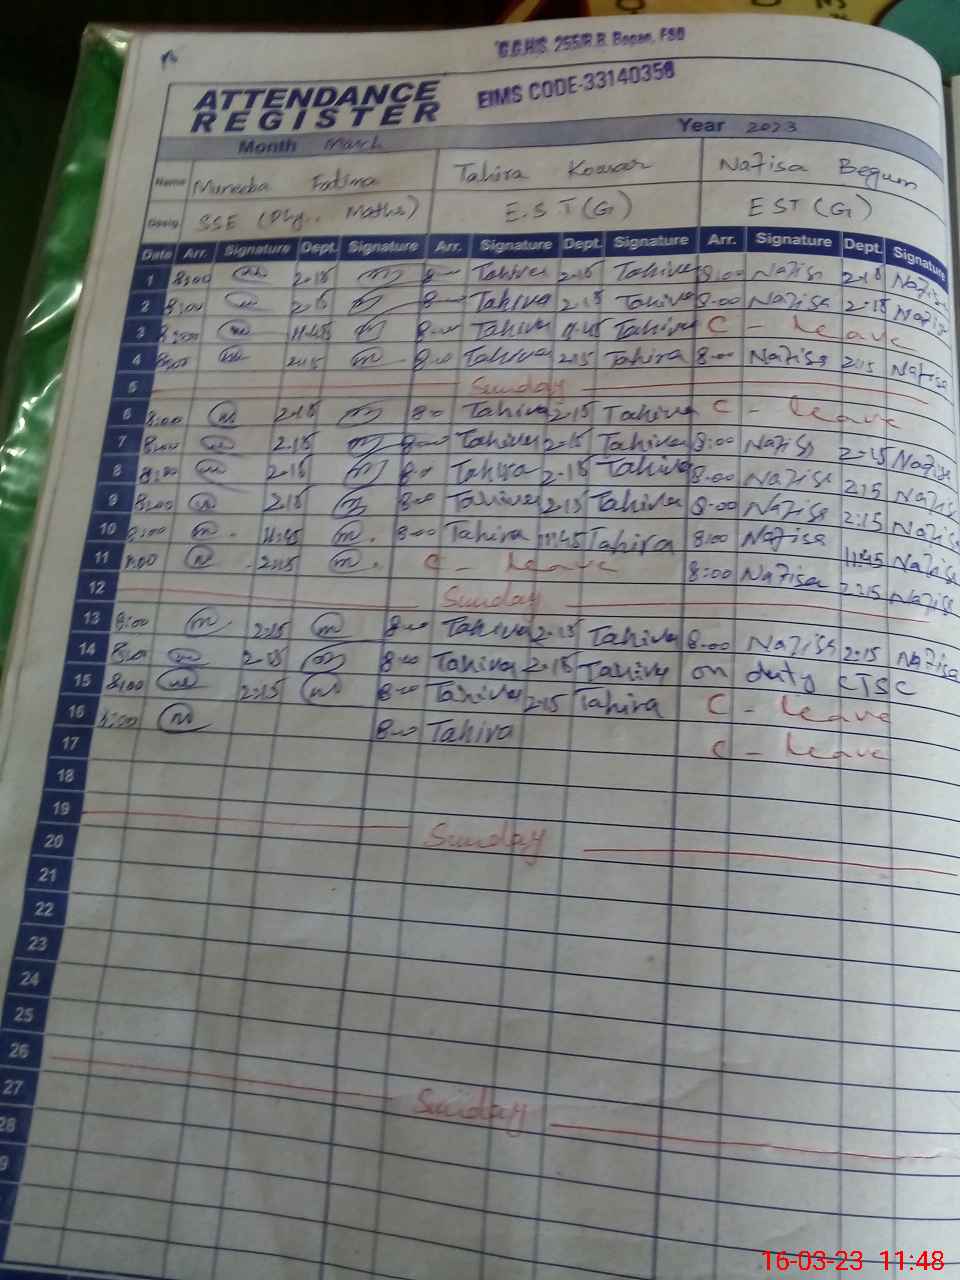 G.G.H.S. 255/R.B. Bogan, FSD
EIMS CODE-33140358
ATTENDANCE
REGISTER
Month March Year 2023
Name Muneeba Fatima Tahira Kowsar Nafisa Begum
Desig. SSE (Phy.. Maths) E.S.T(G) EST(G)
Date Arr. Signature Dept. Signature Arr. Signature Dept. Signature Arr. Signature Dept. Signature
1 8:00 2-15 8-00 Tahira 2-15 Tahira 8:00 Nafisa 2-15 Nafisa
2 8:00 2-15 8-00 Tahira 2-15 Tahira 8-00 Nafisa 2-15 Nafisa
3 8:00 11-45 8-00 Tahira 11-45 Tahira C - Leave
4 8:00 2:15 8-00 Tahira 2:15 Tahira 8-00 Nafisa 2:15 Nafisa
5 Sunday
6 8:00 2-15 8-00 Tahira 2-15 Tahira C - Leave
7 8:00 2-15 8-00 Tahira 2-15 Tahira 8:00 Nafisa 2-15 Nafisa
8 8:00 2-15 8-00 Tahira 2-15 Tahira 8-00 Nafisa 2:15 Nafisa
9 8:00 2:15 8-00 Tahira 2:15 Tahira 8-00 Nafisa 2:15 Nafisa
10 8:00 11:45 8-00 Tahira 11:45 Tahira 8:00 Nafisa 11:45 Nafisa
11 8:00 2:15 C - Leave 8:00 Nafisa 2:15 Nafisa
12 Sunday
13 8:00 2:15 8-00 Tahira 2-15 Tahira 8-00 Nafisa 2:15 Nafisa
14 8:00 2-15 8-00 Tahira 2-15 Tahira on duty CTSC
15 8:00 2:15 8-00 Tahira 2:15 Tahira C - Leave
16 8:00 8-00 Tahira C - Leave
17
18
19 Sunday
20
21
22
23
24
25
26 Sunday
27
28
9
16-03-23 11:48